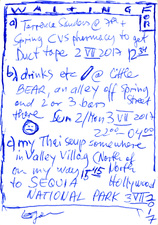 WAITING FOR
a) Terrence Sanders @ 7th +
Spring CVS pharmacies to get
Duct tape 2 VII 2017 12 34
b) drinks etc @ Little
BEAR, an alley off Spring
and 2 or 3 bars street
there Sun 2/VII 2017
22 00 04 00
c) my Thai soup somewhere
in Valley Village (North of
on my way 15 45 North
to SEQUIA Hollywood
NATIONAL PARK 3 VII
2017